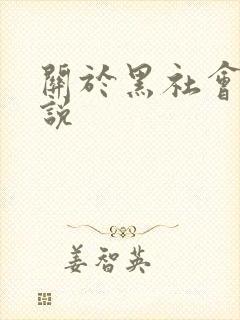 關於黑社會
說
姜智英